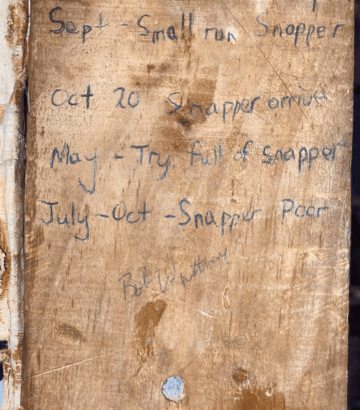 Sept - Small run Snapper
Oct 20 Snapper arrive
May - Try full of Snapper
July - Oct - Snapper Poor
Bob